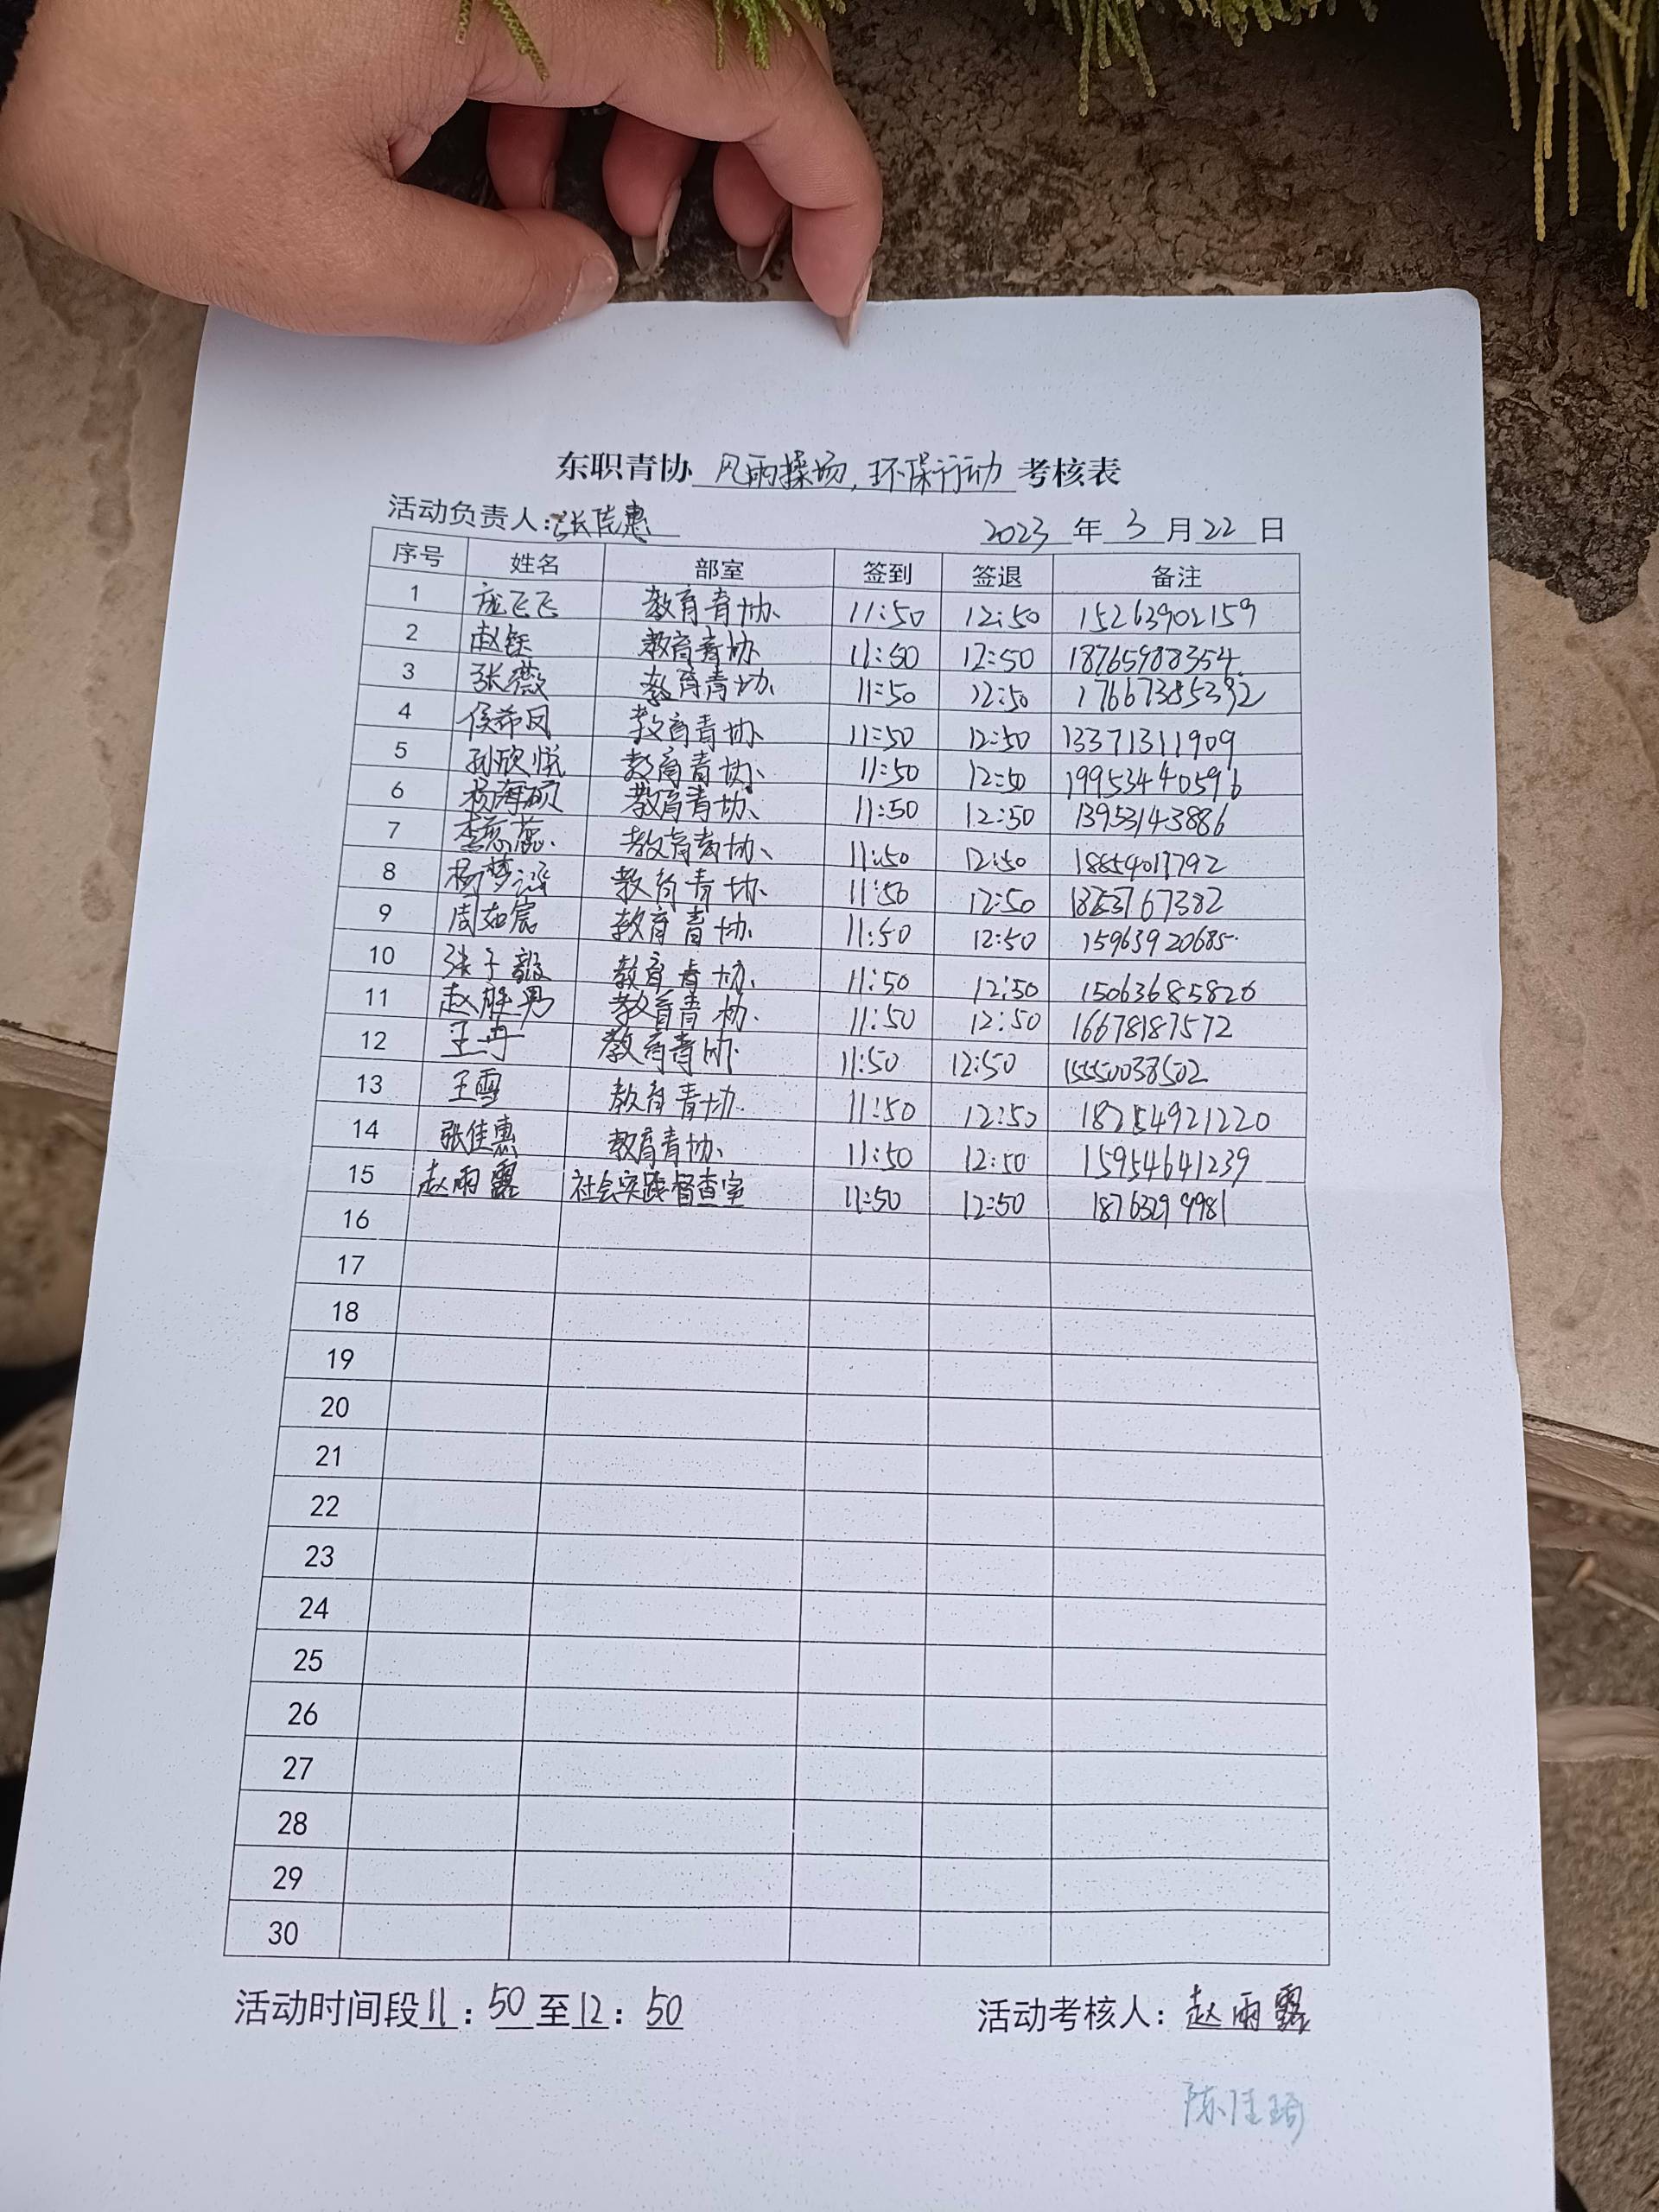 东职青协 风雨操场,环保行动 考核表
活动负责人:张佳惠 2023 年 3 月 22 日
序号 姓名 部室 签到 签退 备注
1 庞飞飞 教育青协 11:50 12:50 15263902159
2 赵钰 教育青协 11:50 12:50 18765988354
3 张薇 教育青协 11:50 12:50 17667385392
4 侯希凤 教育青协 11:50 12:50 13371311909
5 孙欣悦 教育青协 11:50 12:50 19953440596
6 杨海硕 教育青协 11:50 12:50 13953143886
7 教育青协 11:50 12:50
8 教育青协 11:50 12:50
9 周如宸 教育青协 11:50 12:50 15963920685
10 张子毅 教育青协 11:50 12:50 15063685826
11 赵胜男 教育青协 11:50 12:50 16678187572
12 王丹 教育青协 11:50 12:50 15550038502
13 王雪 教育青协 11:50 12:50 18254921220
14 张佳惠 教育青协 11:50 12:50 15954641239
15 赵雨露 社会实践督查室 11:50 12:50 18763299981
16
17
18
19
20
21
22
23
24
25
26
27
28
29
30
活动时间段 11:50 至 12:50 活动考核人:赵雨露
陈佳琦